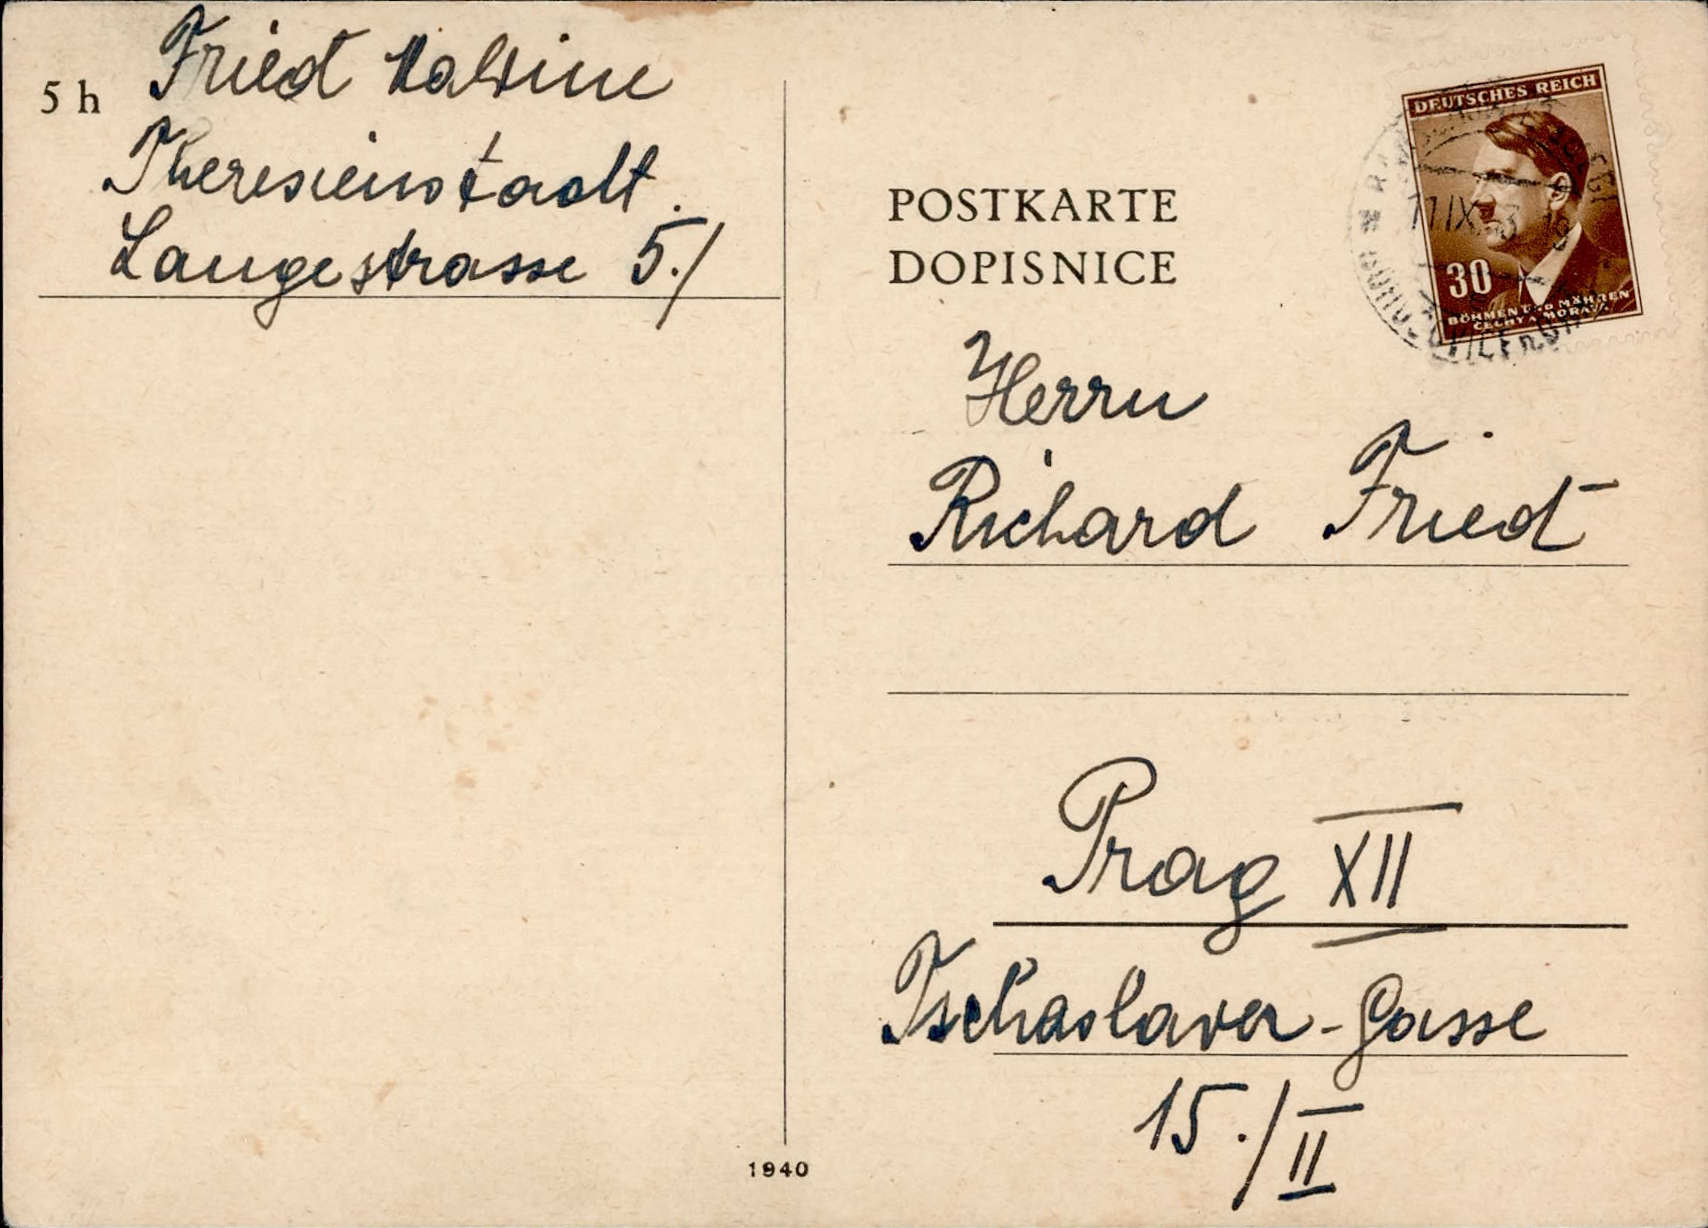 5 h
Fried Malvine
Theresienstadt.
Langestrasse 5./
POSTKARTE
DOPISNICE
DEUTSCHES REICH
30
BÖHMEN UND MÄHREN
ČECHY A MORAVA
Herrn
Richard Fried
Prag XII
Tschaslaver-Gasse
15./II
1940